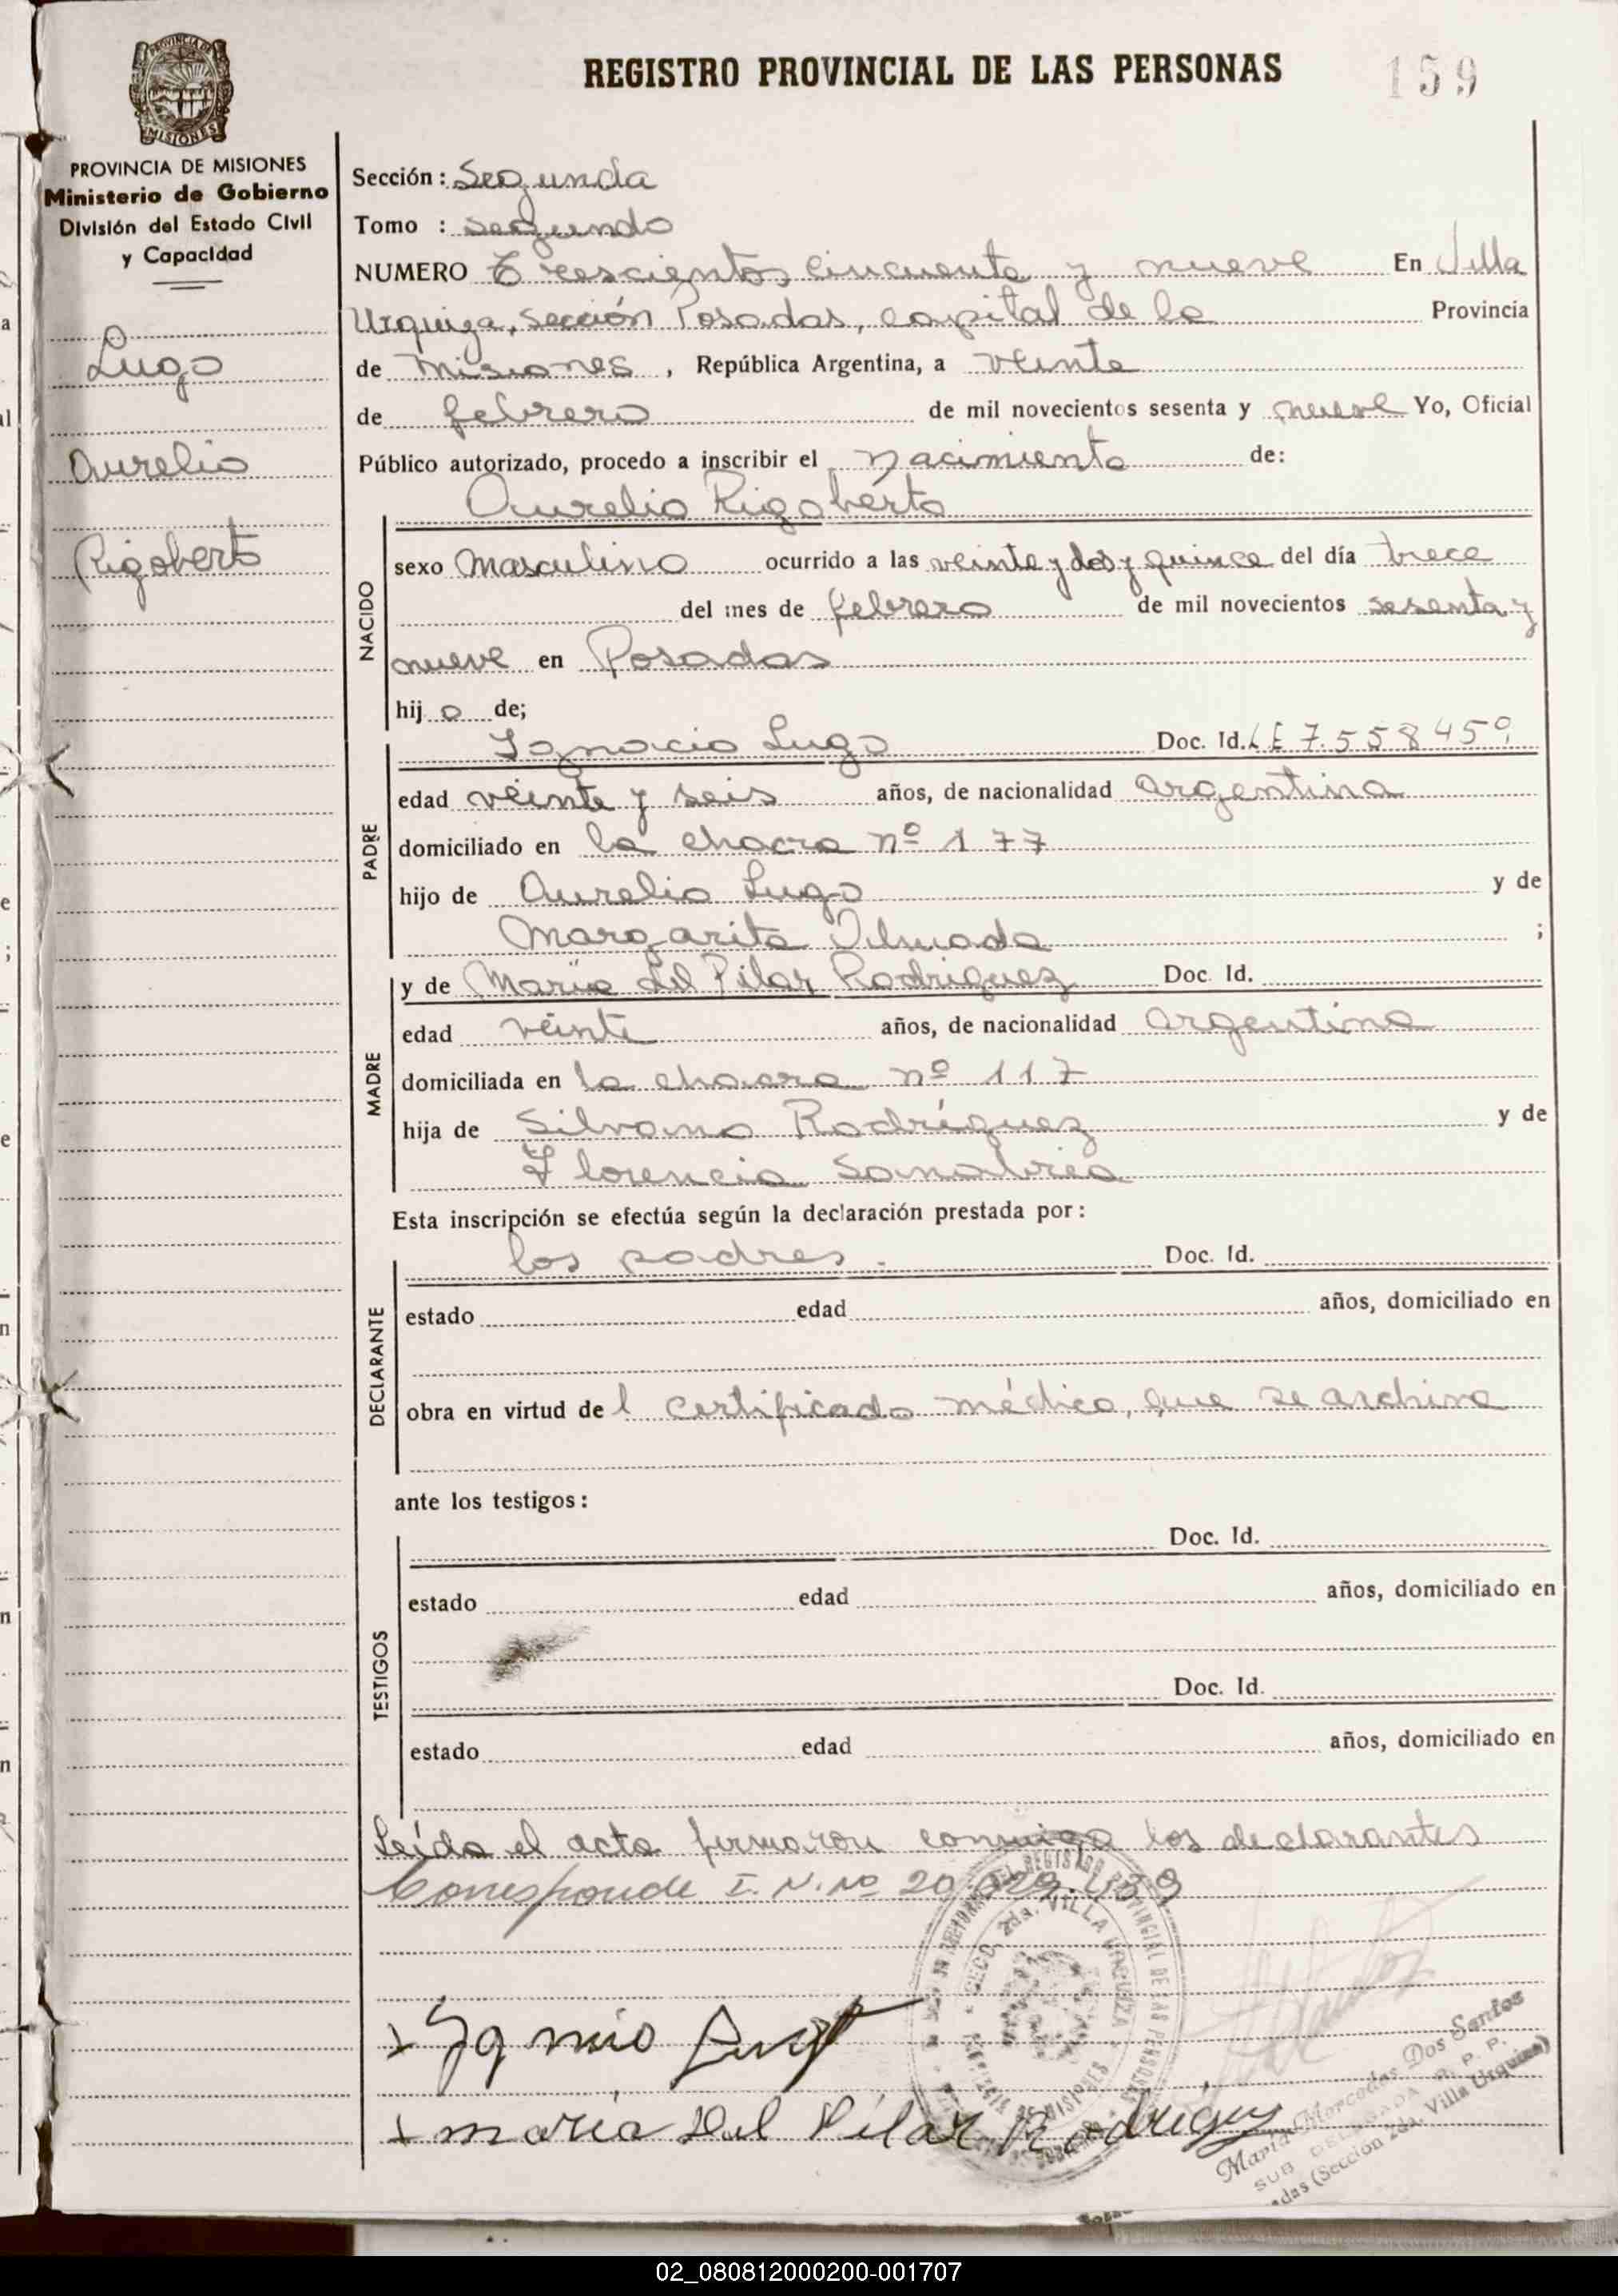 REGISTRO PROVINCIAL DE LAS PERSONAS
159
PROVINCIA DE MISIONES
MISIONES
PROVINCIA DE MISIONES
Ministerio de Gobierno
División del Estado Civil
y Capacidad
Lugo
Aurelio
Rigoberto
Sección : Segunda
Tomo : segundo
NUMERO Trescientos cincuenta y nueve En Villa
Urquiza, sección Posadas, capital de la Provincia
de Misiones, República Argentina, a veinte
de febrero de mil novecientos sesenta y nueve Yo, Oficial
Público autorizado, procedo a inscribir el nacimiento de:
Aurelio Rigoberto
NACIDO
sexo masculino ocurrido a las veinte y dos y quince del día trece
del mes de febrero de mil novecientos sesenta y
nueve en Posadas
hij o de;
PADRE
Ignacio Lugo Doc. Id. LE 7.558459
edad veinte y seis años, de nacionalidad argentina
domiciliado en la chacra nº 177
hijo de Aurelio Lugo y de
Margarita ;
MADRE
y de María Del Pilar Rodriguez Doc. Id.
edad veinte años, de nacionalidad argentina
domiciliada en la chacra nº 117
hija de Silvano Rodríguez y de
Florencia Sanabria
Esta inscripción se efectúa según la declaración prestada por:
DECLARANTE
los padres. Doc. Id.
estado edad años, domiciliado en
obra en virtud de l certificado médico, que se archiva
ante los testigos:
TESTIGOS
Doc. Id.
estado edad años, domiciliado en
Doc. Id.
estado edad años, domiciliado en
Leída el acta firmaron conmigo los declarantes
Corresponde I. N. Nº 20.029.459
REGISTRO PROVINCIAL DE LAS PERSONAS
SECC. 2da. VILLA URQUIZA
MISIONES
Ignacio Lugo
María Del Pilar Rodriguez
María Mercedes Dos Santos
SUB DELEGADA R. P. P.
(Sección 2da. Villa Urquiza)
02_080812000200-001707